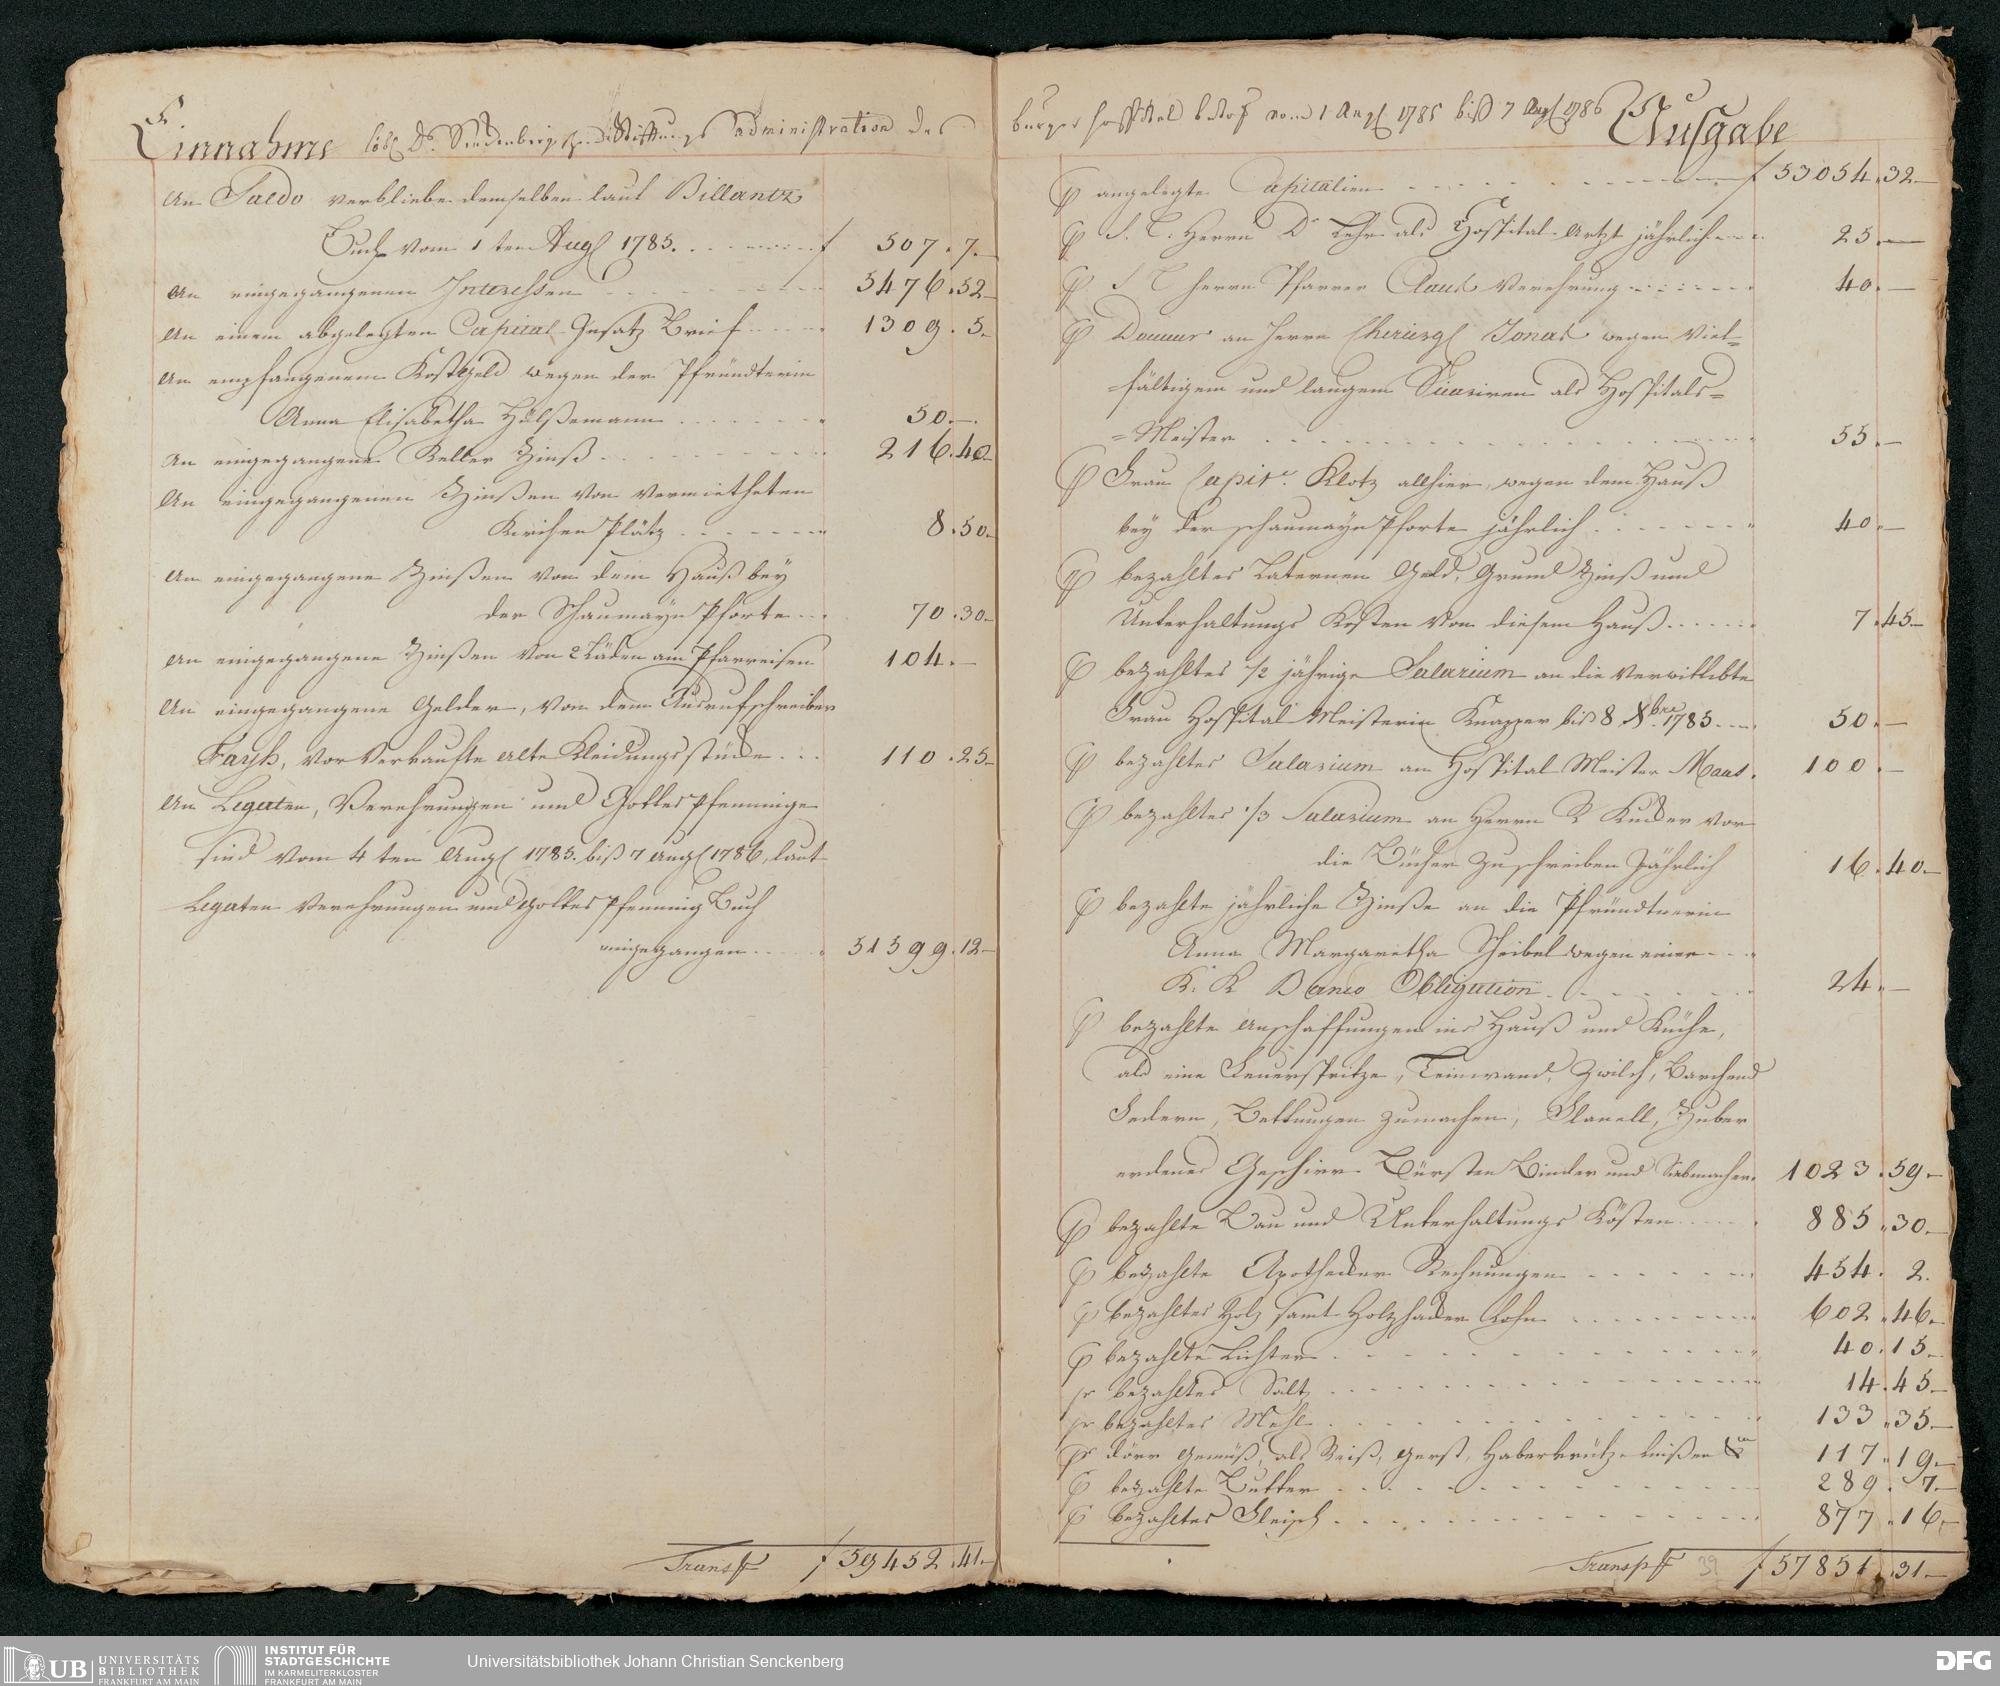 Einnahme löbl Dr. Senckenbergischen Stiftungs administration des
An Saldo verbliebe demselben laut Billantz
Buch vom 1 ten Augl 1785. f 507. 7.
An eingegangenen Interessen 5476. 52.
An einem abgelegten Capital Insatz Brief 1309. 5.
An empfangenem Kostgeld wegen der Pfründterin
Anna Elisabetha Hülßemann 50.
An eingegangene Keller Zinß 216. 40
An eingegangenen Zinßen von vermietheten
Kirchen Plätz 8. 50
An eingegangene Zinßen von dem Hauß bey
der Schaumayn Pforte 70. 30.
An eingegangene Zinßen von 2 Läden am Pfarreisen 104.
An eingegangene Gelder, von dem Ausrufschreiber
Fayh, vor verkaufte alte Kleidungsstücke 110. 25
An Legaten, Verehrungen und Gottespfennige
sind vom 4 ten Augl 1785. biß 7 Augl 1786, laut
Legaten Verehrungen und Gottes Pfenning Buch
eingegangen 51599. 12
Transp f 59452. 41
burger hospital betref vom 1 Augl 1785 biß 7 Augl 1786 Ausgabe
angelegte Capitalien f 53054. 32
S. T. Herrn Dr Lehr als Hospital Artzt jährlich 25.
S T herrn Pfarrer Claus Verehrung 40.
Douceur an Herrn Chirurgl Jonas wegen viel=
fältigem und langem Vicariren als Hospitals=
=Meister 55.
Frau Capit. Klotz allhier, wegen dem Hauß
bey der schaumayn Pforte jährlich 40.
bezahltes Laternen Geld, Grund Zinß und
Unterhaltungs Kosten von diesem Hauß 7. 45
bezahltes 1/2 jährige Salarium an die verwittibte
Frau Hospital Meisterin Knapper biß 8 Xbre 1785 50.
bezahltes Salarium an Hospital Meister Maas. 100.
bezahltes 1/3 Salarium an Herrn R Kucker vor
die Bücher zu schreiben Jährlich 16. 40
bezahlte jährliche Zinße an die Pfründtnerin
Anna Margaretha Scheibel wegen einer
K. K Banco Obligation 24.
bezahlte anschaffungen ins Hauß und Küche,
als eine Feuerspritze, Leinwand, Zwilch, Barchend
Federn, Bettungen zumachen, Flanell, Zuber
erdenes Geschirr Bürsten Binder und Siebmacher 1023. 59
bezahlte Bau und Unterhaltungs Kösten 885. 30.
bezahlte Apothecker Rechnungen 454. 2.
bezahltes Holz samt Holzhacker Lohn 602. 46.
bezahlte Lichter 40. 15
pr bezahltes Saltz 14. 45
pr bezahltes Mehl 133. 35
pr dörr Gemüß, als Reiß, Gerst, Haberkrütz Linßen 117. 19
bezahlte Butter 289. 7.
bezahltes Fleisch 877. 16.
Transp f 57851. 31
39
UB UNIVERSITÄTS
BIBLIOTHEK
FRANKFURT AM MAIN
INSTITUT FÜR
STADTGESCHICHTE
IM KARMELITERKLOSTER
FRANKFURT AM MAIN
Universitätsbibliothek Johann Christian Senckenberg
DFG